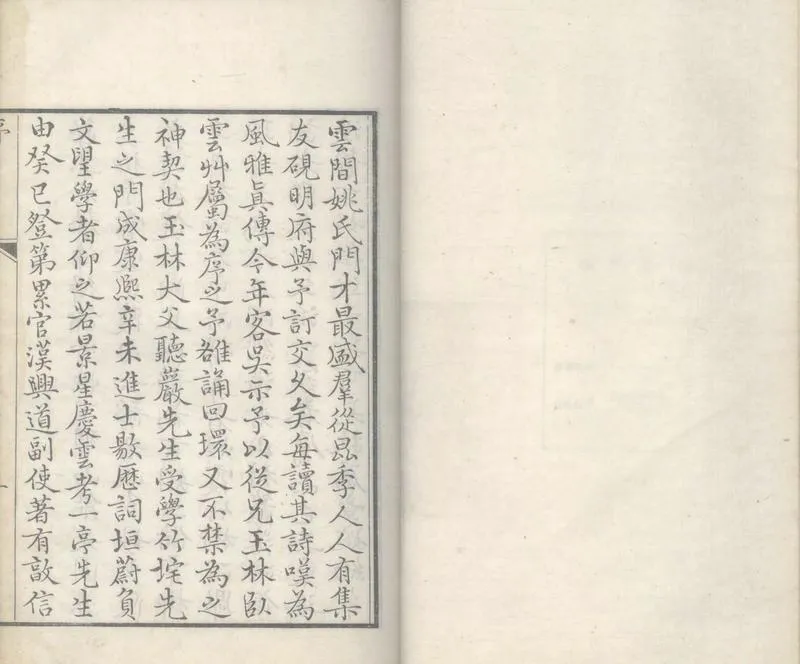 雲間姚氏門才最盛羣從昆季人人有集
友硯明府與予訂交久矣每讀其詩嘆為
風雅真傳今年客吳示予以從兄玉林臥
雲艸屬為序之予雒誦回環又不禁為之
神契也玉林大父聽巖先生受學竹垞先
生之門成康熙辛未進士敭歷詞垣蔚負
文望學者仰之若景星慶雲考一亭先生
由癸巳登第累官漢興道副使著有敦信